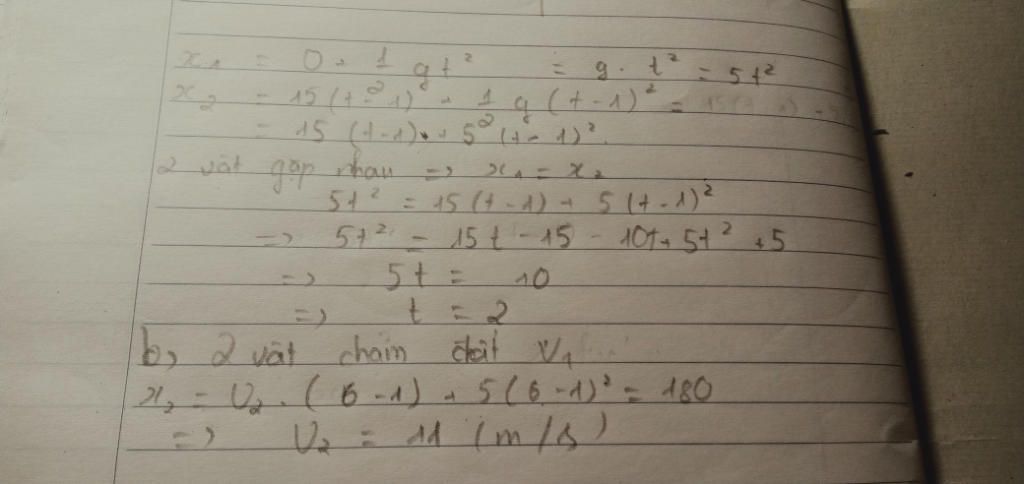 x₁ = 0 + 1/2 gt² = g · t² = 5t²
x₂ = 15(t-1) + 1/2 g(t-1)² =
= 15(t-1) + 5(t-1)².
2 vật gặp nhau => x₁ = x₂
5t² = 15(t-1) + 5(t-1)²
=> 5t² = 15t - 15 - 10t + 5t² + 5
=> 5t = 10
=> t = 2
b, 2 vật chạm đất V₁
x₂ = V₂ . (6-1) + 5(6-1)² = 180
=> V₂ = 11 (m/s)